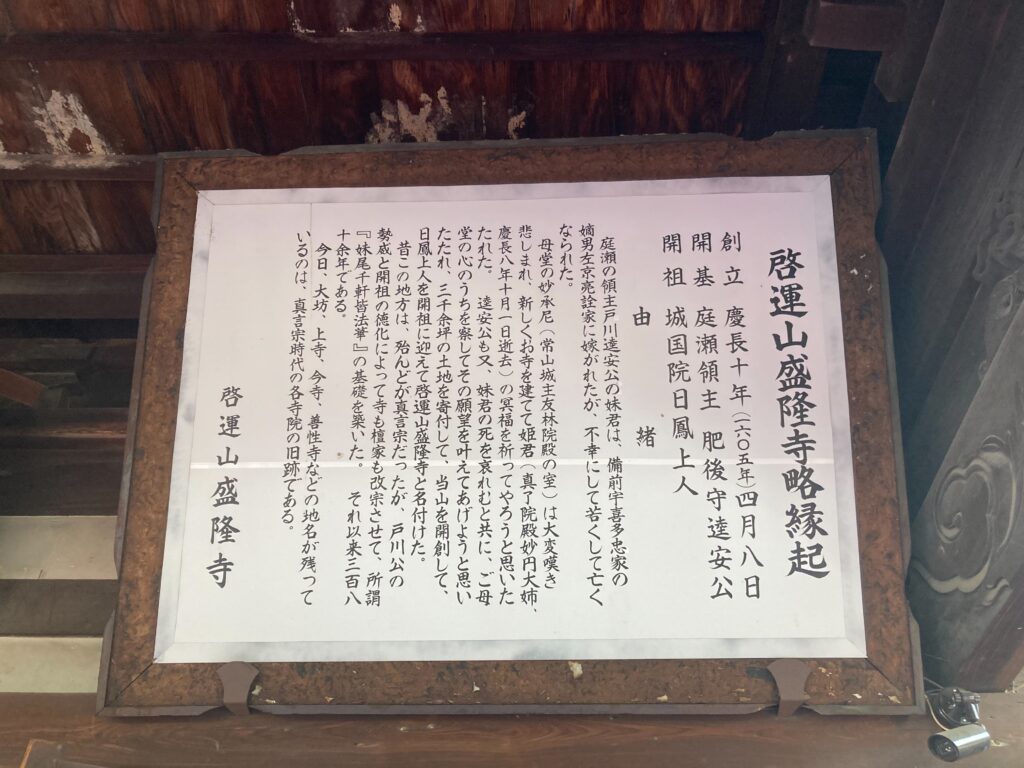 啓運山盛隆寺略縁起
創立 慶長十年(一六〇五年)四月八日
開基 庭瀬領主 肥後守逵安公
開祖 城国院日鳳上人
由緒
庭瀬の領主戸川逵安公の妹君は、備前宇喜多忠家の
嫡男左京亮詮家に嫁がれたが、不幸にして若くして亡く
なられた。
母堂の妙承尼(常山城主友林院殿の室)は大変嘆き
悲しまれ、新しくお寺を建てて姫君(真了院殿妙円大姉、
慶長八年十月一日逝去)の冥福を祈ってやろうと思いた
たれた。 逵安公も又、妹君の死を哀れむと共に、ご母
堂の心のうちを察してその願望を叶えてあげようと思い
たたれ、三千余坪の土地を寄付して、当山を開創して、
日鳳上人を開祖に迎えて啓運山盛隆寺と名付けた。
昔この地方は、殆んどが真言宗だったが、戸川公の
勢威と開祖の徳化によって寺も檀家も改宗させて、所謂
『妹尾千軒皆法華』の基礎を築いた。 それ以来三百八
十余年である。
今日、大坊、上寺、今寺、善性寺などの地名が残って
いるのは、真言宗時代の各寺院の旧跡である。
啓運山盛隆寺